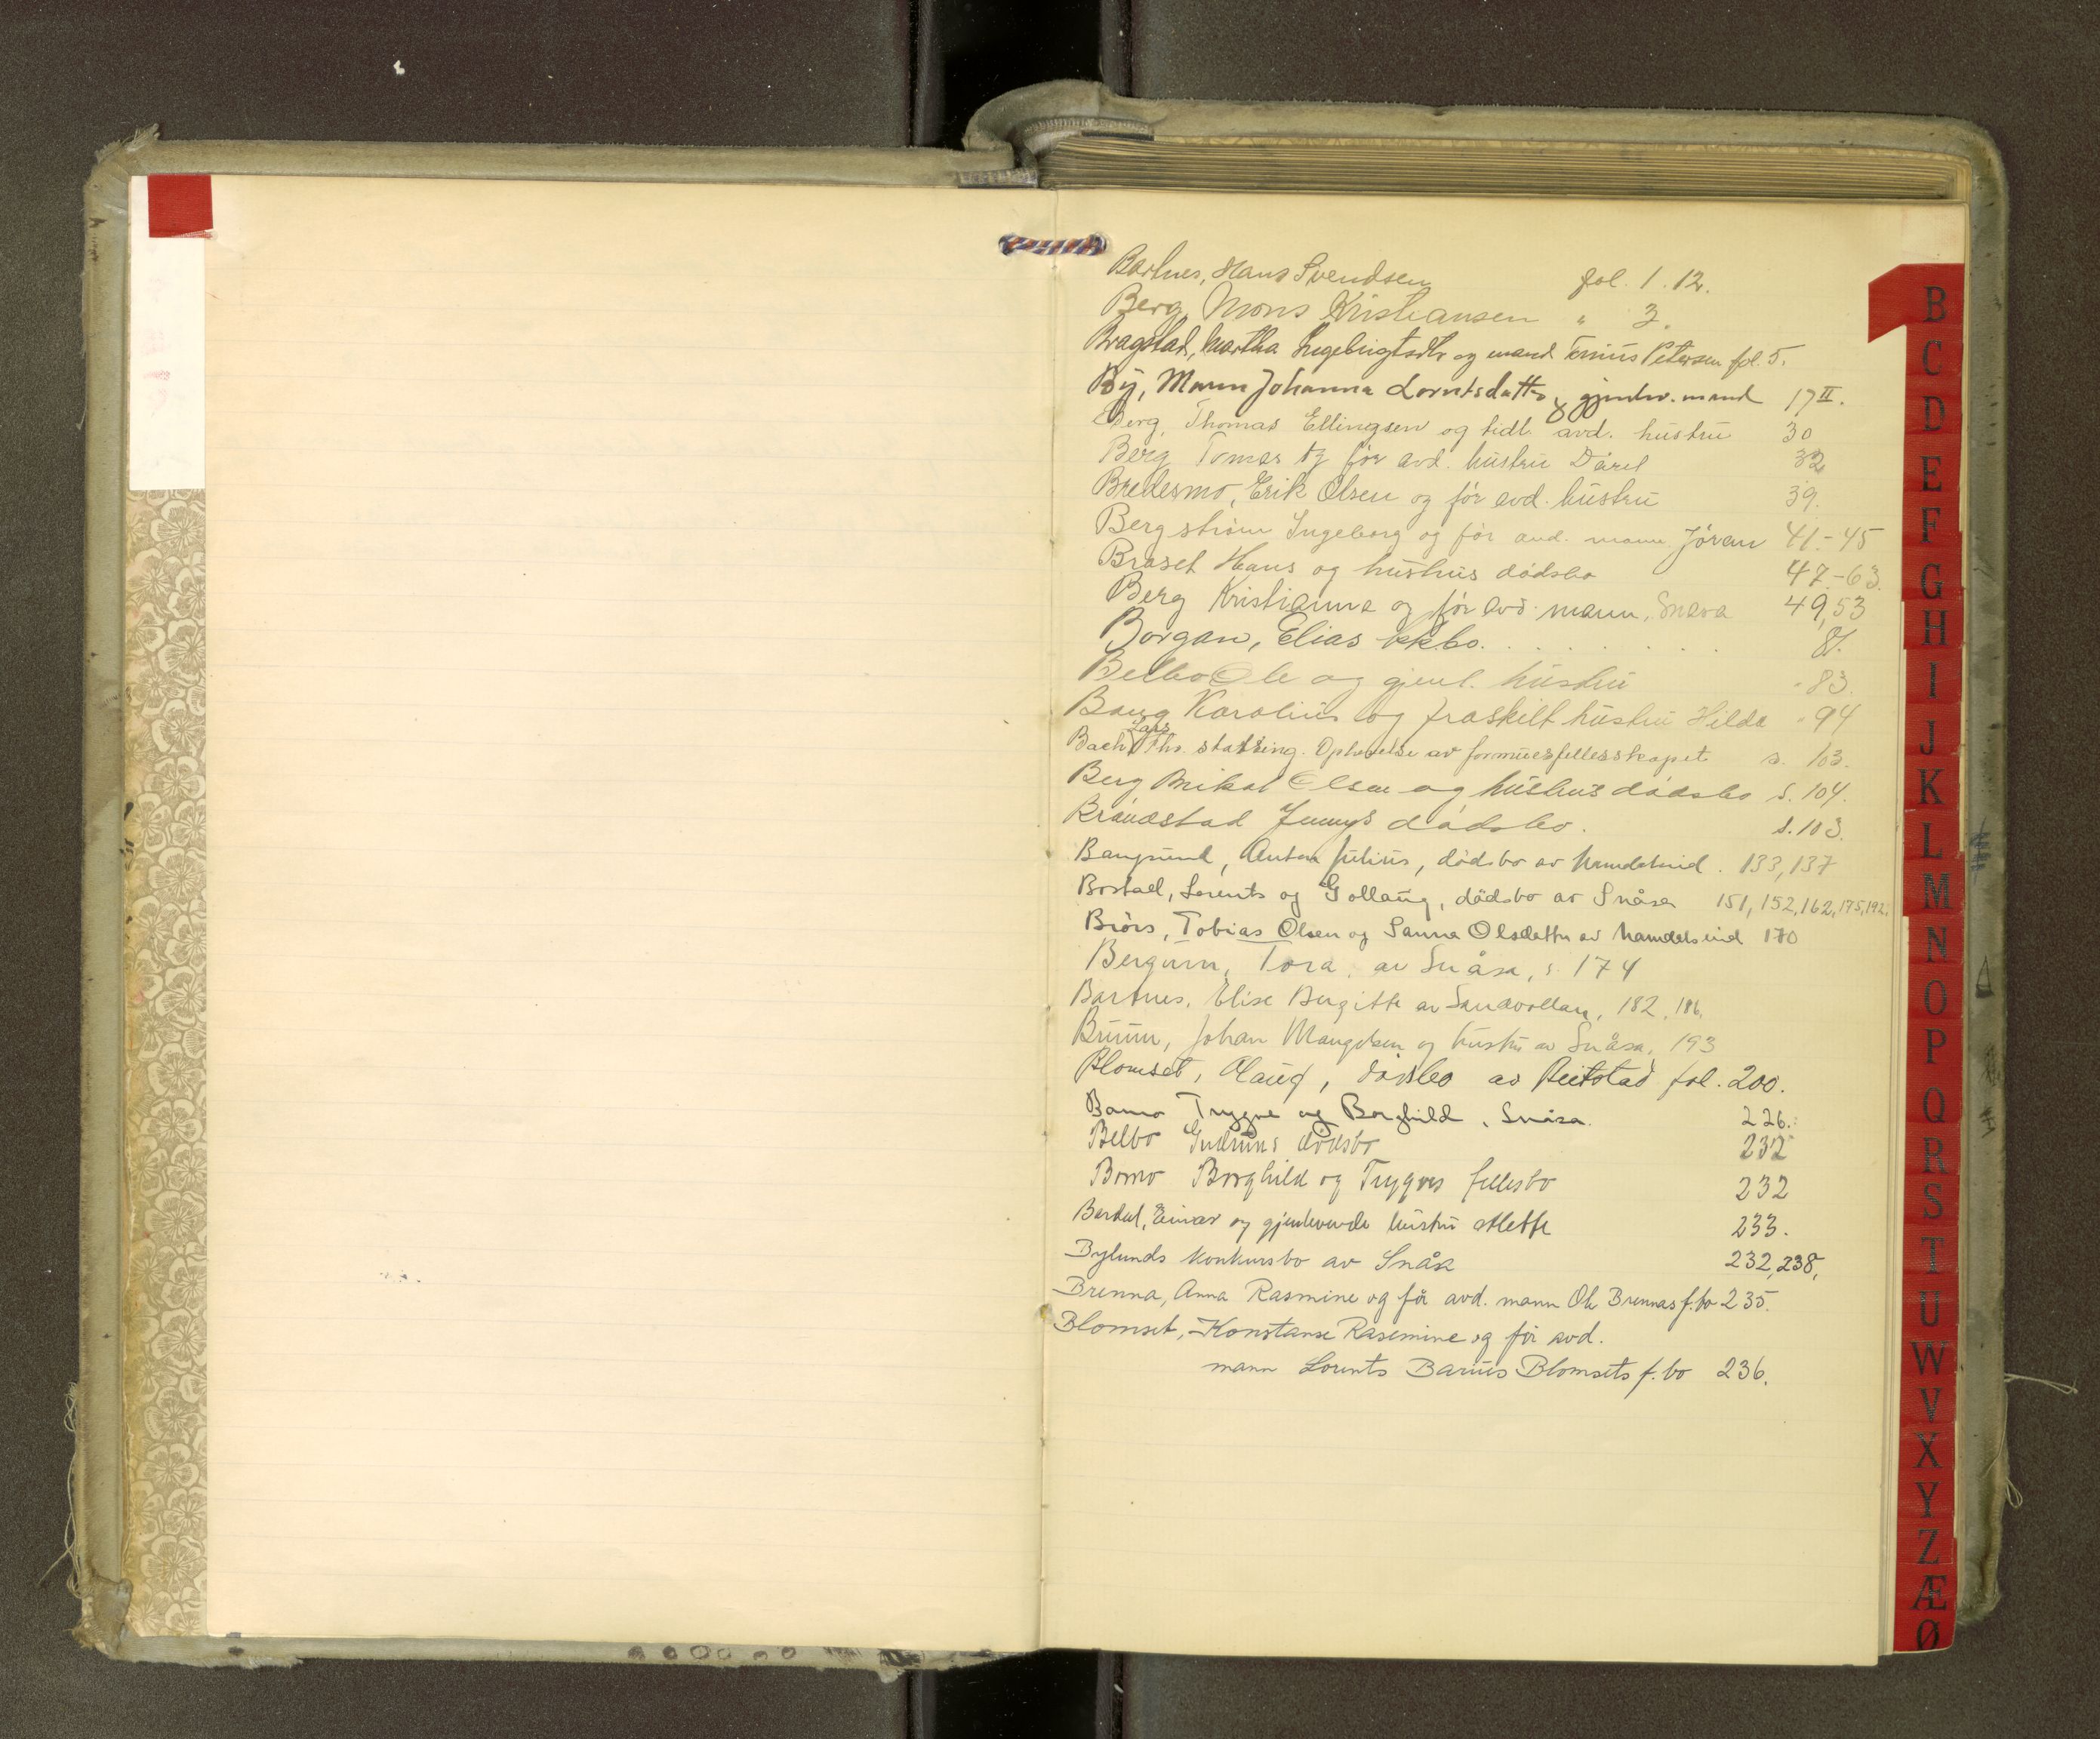 Bartnes, Hans Svendsen fol. 1. 12.
Berg, Mons Kristiansen " 3.
Bragstad, Martha Ingebrigtsdtr og mand Tenius Petersen fol. 5.
By, Maren Johanna Lorntsdatter, gjenlev. mand 17 II.
Berg, Thomas Ellingsen og tidl. avd. hustru 30
Berg Tomas og før avd. hustru Dårel 32
Bredesmo, Erik Olsen og før avd. hustru 39.
Bergstrøm Ingeborg og før avd. mann Jöran 41.-45
Braset Hans og hustrus dödsbo 47-63.
Berg Kristianna og før avd. mann, Snåsa 49,53
Borgan, Elias kkbo. 81.
Belbo Ole og gjenl. hustru " 83.
Bang Karolius og fraskilt hustru Hilde " 94
Bach Lars Ths. statsing. Ophevelse av formuesfellesskapet s. 103.
Berg Mikal Olsen og hustrus dødsbo s. 104.
Brandstad Jennys dødsbo. s. 103.
Bangsund, Anton Julius, dödsbo av Namdalseid. 133, 137
Bostad, Lorents og Gollaug, dödsbo av Snåsa 151, 152, 162, 175, 192.
Brörs, Tobias Olsen og Sanna Olsdatter av Namdalseid 170
Bergum, Tora, av Snåsa, s. 174
Bartnes, Elise Bergitte av Sandvollan, 182, 186.
Bruun, Johan Mangelsen og hustru av Snåsa, 193
Blomset, Olaug, dødsbo av Beitstad fol. 200.
Bomo Trygve og Borghild, Snåsa. 226.
Belbo Gudruns dödsbo 232
Bomo Borghild og Trygves fellesbo 232
Bardal, Einar og gjenlevende hustru Mette 233.
Bylunds konkursbo av Snåsa 232, 238,
Brenna, Anna Rasmine og før avd. mann Ole Brennas f.bo 235.
Blomset, Konstanse Rasemine og för avd.
mann Lorents Barius Blomsets f. bo 236.
B
C
D
E
F
G
H
I
J
K
L
M
N
O
P
Q
R
S
T
U
W
V
X
Y
Z
Æ
Ø